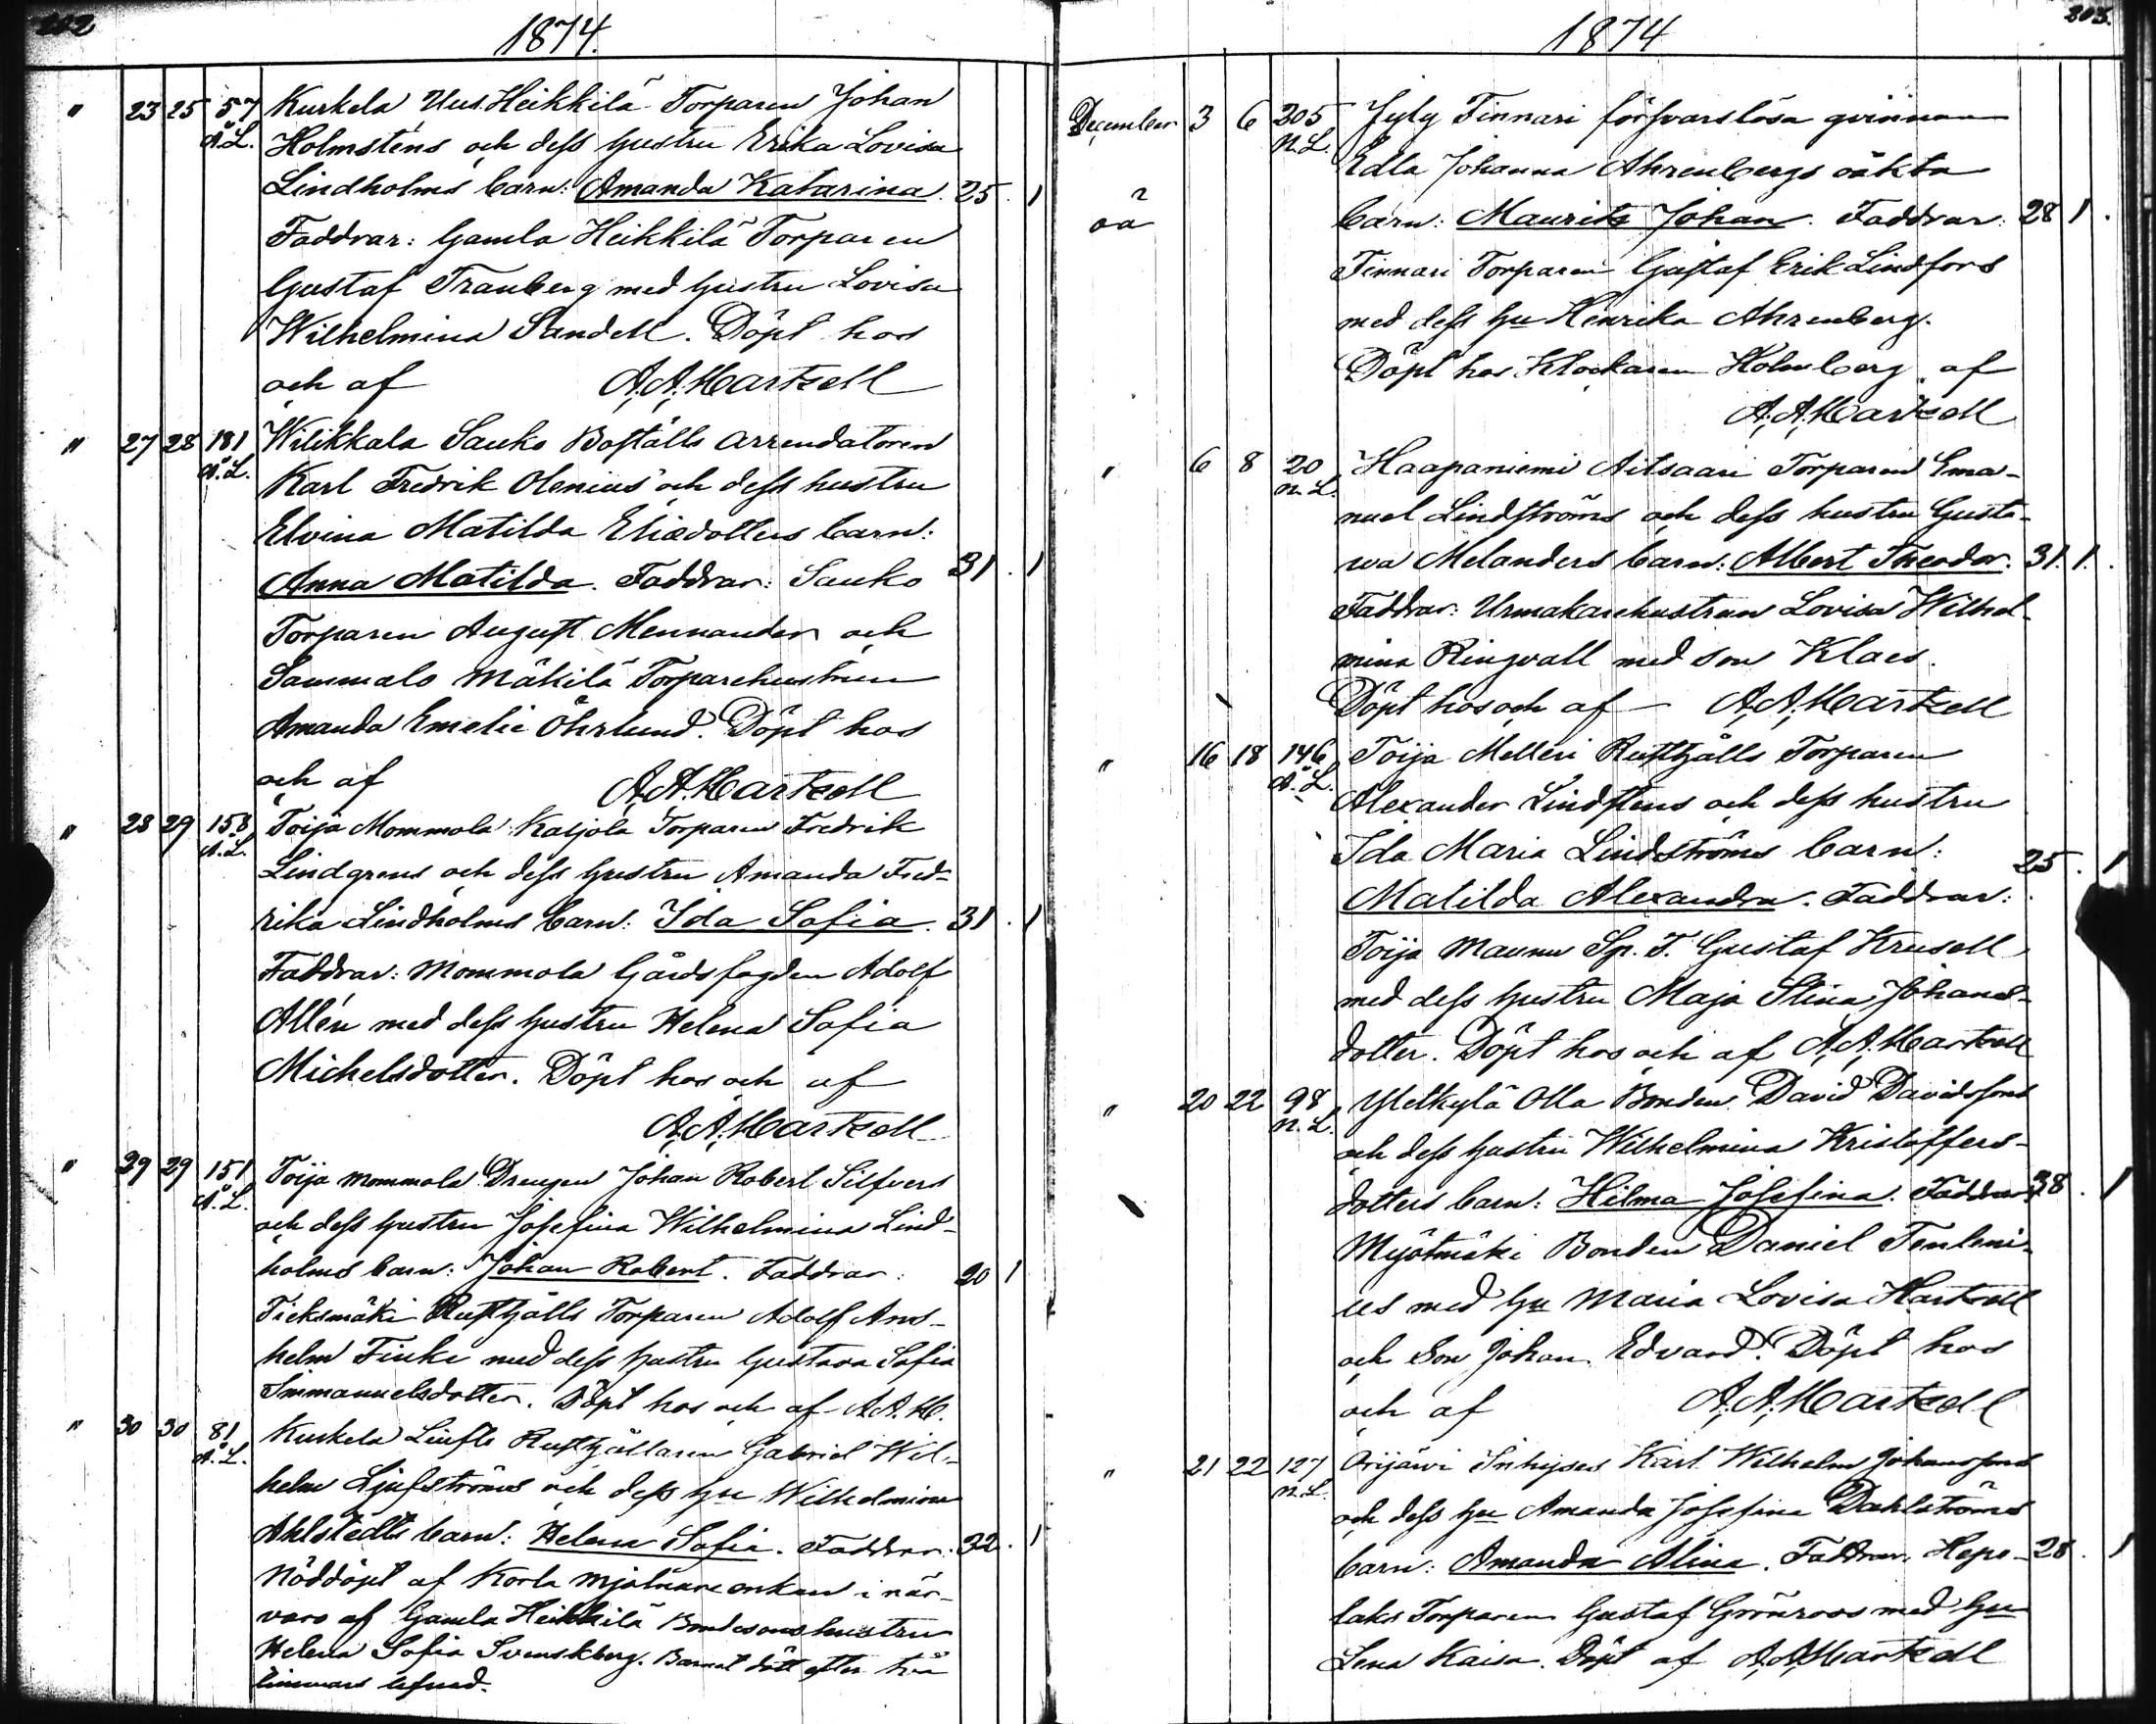 202
1874.
" 23 25 57 Kurkela Uus Heikkilä Torparen Johan
Å.L. Holmstens och dess hustru Erika Lovisa
Lindholms barn: Amanda Katarina. 25. 1
Faddrar: Gamla Heikkilä Torparen
Gustaf Tranberg med hustru Lovisa
Wilhelmina Sandell. Döpt hos
och af A. A. Hartzell
" 27 28 181 Wiikkala Sauko Boställs arrendatoren
Å.L. Karl Fredrik Olenius och dess hustru
Elvina Matilda Eliædotters barn:
Anna Matilda. Faddrar: Sauko 31. 1
Torparen August Mennander och
Sammalo Mäkilä Torparehustrun
Amanda Emelie Öhrlund. Döpt hos
och af A. A. Hartzell
" 28 29 158 Toija Mommola Katjola Torparen Fredrik
Å.L. Lindgrens och dess hustru Amanda Fred-
rika Lindholms barn: Ida Sofia. 31. 1
Faddrar: Mommola Gårdsfogden Adolf
Allén med dess hustru Helena Sofia
Michelsdotter. Döpt hos och af
A. A. Hartzell
" 29 29 151 Toija Mommola Drengen Johan Robert Silfvers
Å.L. och dess hustru Josefina Wilhelmina Lind-
holms barn: Johan Robert. Faddrar: 20 1
Ticksmäki Rusthålls Torparen Adolf Ans-
helm Finke med dess hustru Gustava Sofia
Immanuelsdotter. Döpt hos och af A. A. H.
" 30 30 81 Kurkela Liufls Rusthållaren Gabriel Wil-
Å.L. helm Ljufströms och dess hu Wilhelmina
Ahlstedts barn: Helena Sofia. Faddrar: 32. 1
Nöddöpt af Korla Mjölnare enkan i när-
varo af Gamla Heikkilä Bondesonshustru
Helena Sofia Svenskberg. Barnet dött efter två
timmars lefnad.
203.
1874
December 3 6 205 Jyly Finnari försvarslösa qvinnan
N.L. Edla Johanna Ahrenbergs oäkta
oä barn: Maurits Johan. Faddrar: 28 1.
Finnari Torparen Gustaf Erik Lindfors
med dess hu Henrika Ahrenberg.
Döpt hos Klockaren Holmberg af
A. A. Hartzell
" 6 8 20 Haapaniemi Aitsaari Torparen Ema-
N.L. nuel Lindströms och dess hustru Gusta-
wa Melanders barn: Albert Theodor. 31. 1.
Faddrar: Urmakarehustrun Lovisa Wilhel-
mina Ringvall med son Klaes.
Döpt hos och af — A. A. Hartzell
" 16 18 146 Toija Melleri Rusthålls Torparen
Å.L. Alexander Lindstens och dess hustru
Ida Maria Lindströms barn: 25. 1
Matilda Alexandra. Faddrar:
Toija Maunu Sp. T. Gustaf Krusell
med dess hustru Maja Stina Johans-
dotter. Döpt hos och af A. A. Hartzell
" 20 22 98 Yltkylä Olla Bonden David Davidssons
N.L. och dess hustru Wilhelmina Kristoffers-
dotters barn: Hilma Josefina. Faddrar: 38. 1
Myötmäki Bonden Daniel Tenleni-
us med hu Maria Lovisa Hartzell
och Son Johan Edvard. Döpt hos
och af A. A. Hartzell
" 21 22 127 Orijärvi Inhyses Karl Wilhelm Johanssons
N.L. och dess hu Amanda Josefina Dahlströms
barn: Amanda Alina. Faddrar: Hepo- 28. 1
laks Torparen Gustaf Grönroos med hu
Lena Kaisa. Döpt af A. A. Hartzell